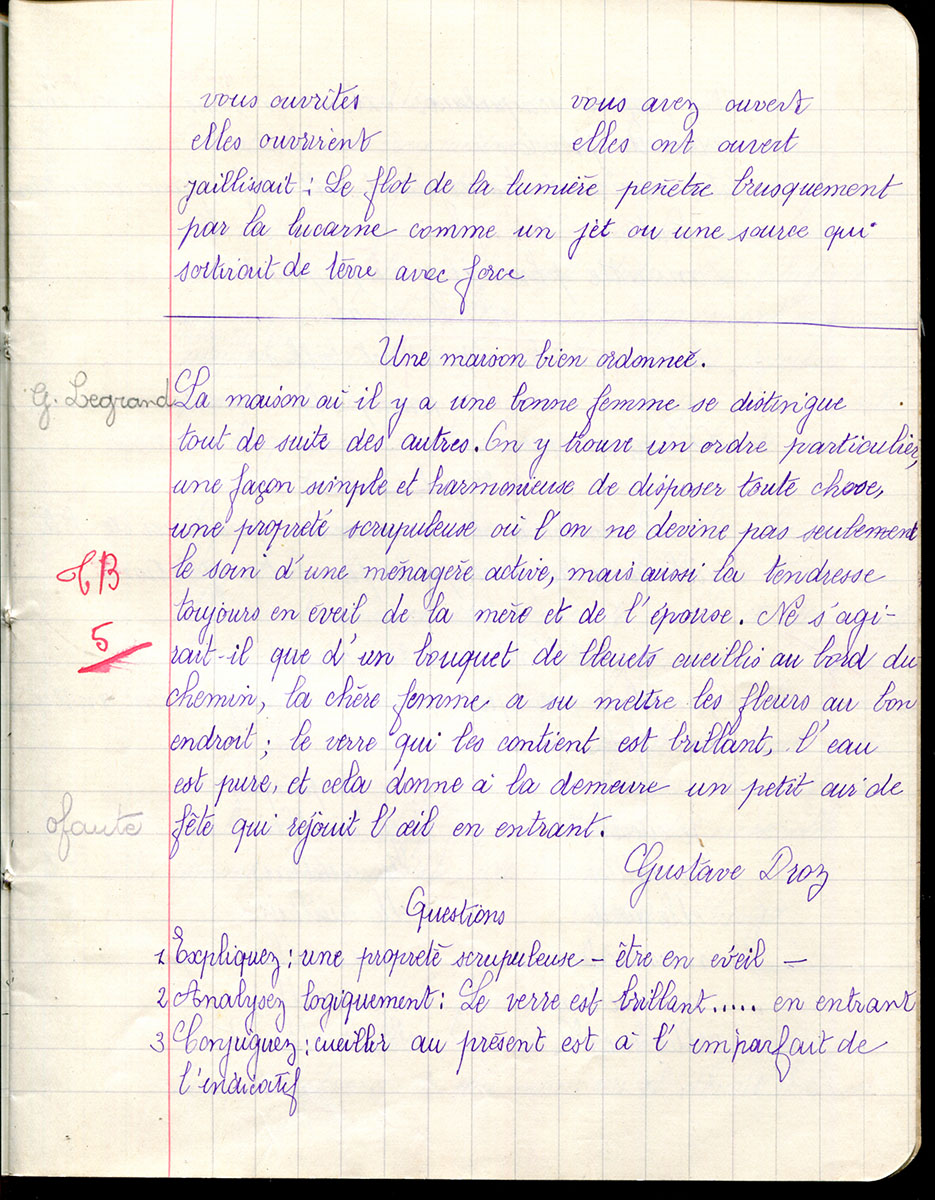 vous ouvrites vous avez ouvert
elles ouvrirent elles ont ouvert
jaillissait : Le flot de la lumière penètre brusquement
par la lucarne comme un jet ou une source qui
sortirait de terre avec force
Une maison bien ordonneé.
G. Legrand
La maison où il y a une bonne femme se distingue
tout de suite des autres. On y trouve un ordre particulier,
une façon simple et harmonieuse de disposer toute chose,
une propreté scrupuleuse où l'on ne devine pas seulement
TB
le soin d'une ménagère active, mais aussi la tendresse
toujours en éveil de la mère et de l'épouse. Ne s'agi-
5
rait-il que d'un bouquet de bleuets cueillis au bord du
chemin, la chère femme a su mettre les fleurs au bon
endroit ; le verre qui les contient est brillant, l'eau
est pure, et cela donne à la demeure un petit air de
0faute
fête qui rejouit l'œil en entrant.
Gustave Droz
Questions
1 Expliquez : une propreté scrupuleuse – être en eveil –
2 Analysez logiquement : Le verre est brillant..... en entrant
3 Conjuguez : cueillir au présent est à l'imparfait de
l'indicatif